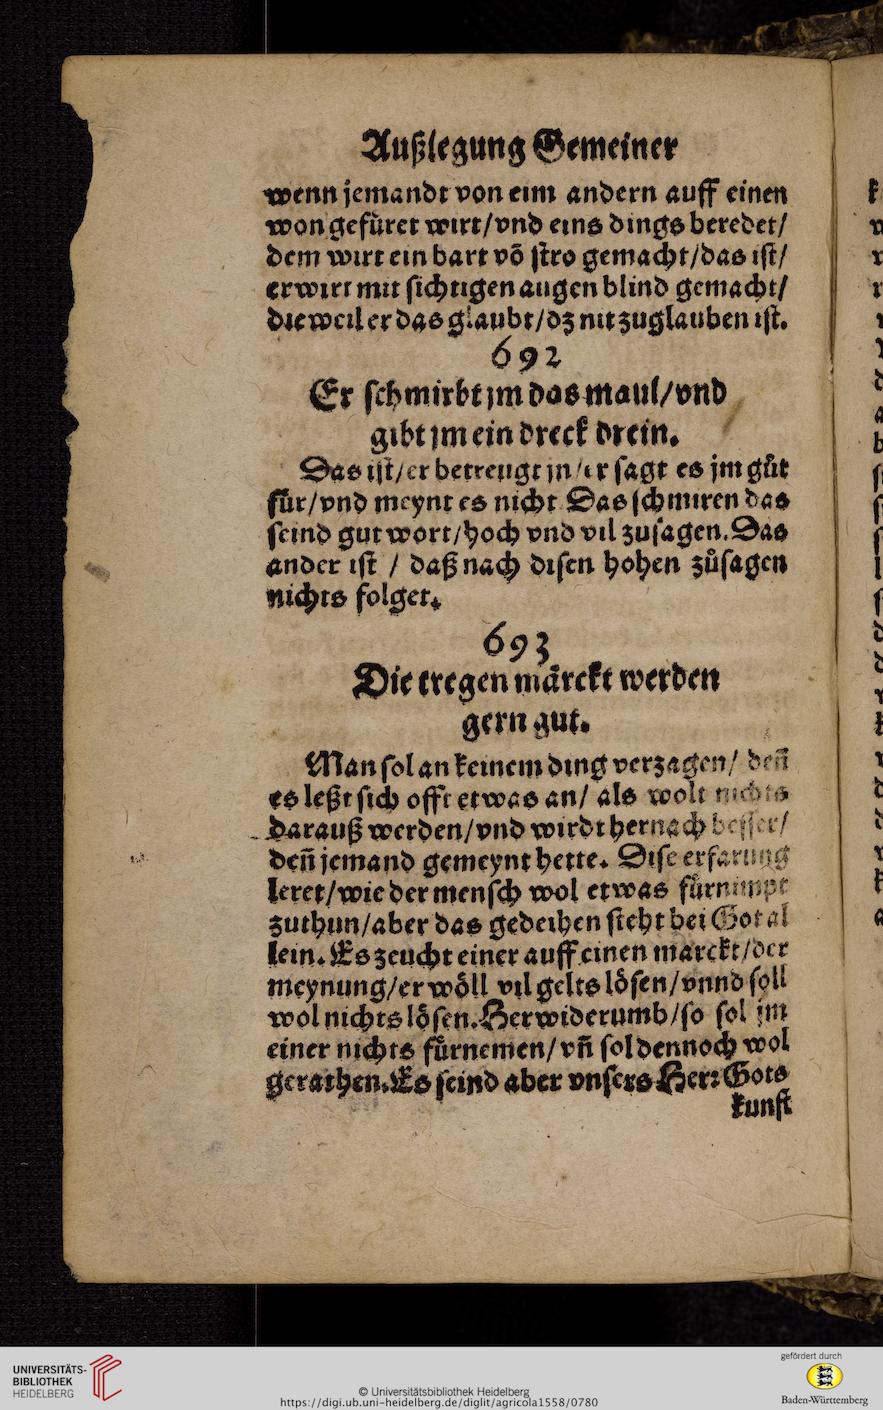 Außlegung Gemeiner
wenn jemandt von eim andern auff einen
won gefüret wirt/vnd eins dings beredet/
dem wirt ein bart võ stro gemacht/das ist/
er wirt mit sichtigen augen blind gemacht/
dieweil er das glaubt/dz nit zuglauben ist.
692
Er schmirbt jm das maul/vnd
gibt jm ein dreck drein.
Das ist/er betreugt jn/er sagt es jm gůt
für/vnd meynt es nicht Das schmiren das
seind gut wort/hoch vnd vil zusagen. Das
ander ist / daß nach disen hohen zůsagen
nichts folget.
693
Die tregen märckt werden
gern gut.
Man sol an keinem ding verzagen/ deñ
es leßt sich offt etwas an/ als wolt nichts
darauß werden/vnd wirdt hernach besser/
deñ jemand gemeynt hette. Dise erfarung
leret/wie der mensch wol etwas fürnimpt
zuthun/aber das gedeihen steht bei Got al
lein. Es zeucht einer auff einen marckt/der
meynung/er wöll vil gelts lösen/vnnd soll
wol nichts lösen. Herwiderumb/so sol jm
einer nichts fürnemen/vñ sol dennoch wol
gerathen. Es seind aber vnsers Herr Gots
kunst
UNIVERSITÄTS-
BIBLIOTHEK
HEIDELBERG
© Universitätsbibliothek Heidelberg
https://digi.ub.uni-heidelberg.de/diglit/agricola1558/0780
gefördert durch
Baden-Württemberg